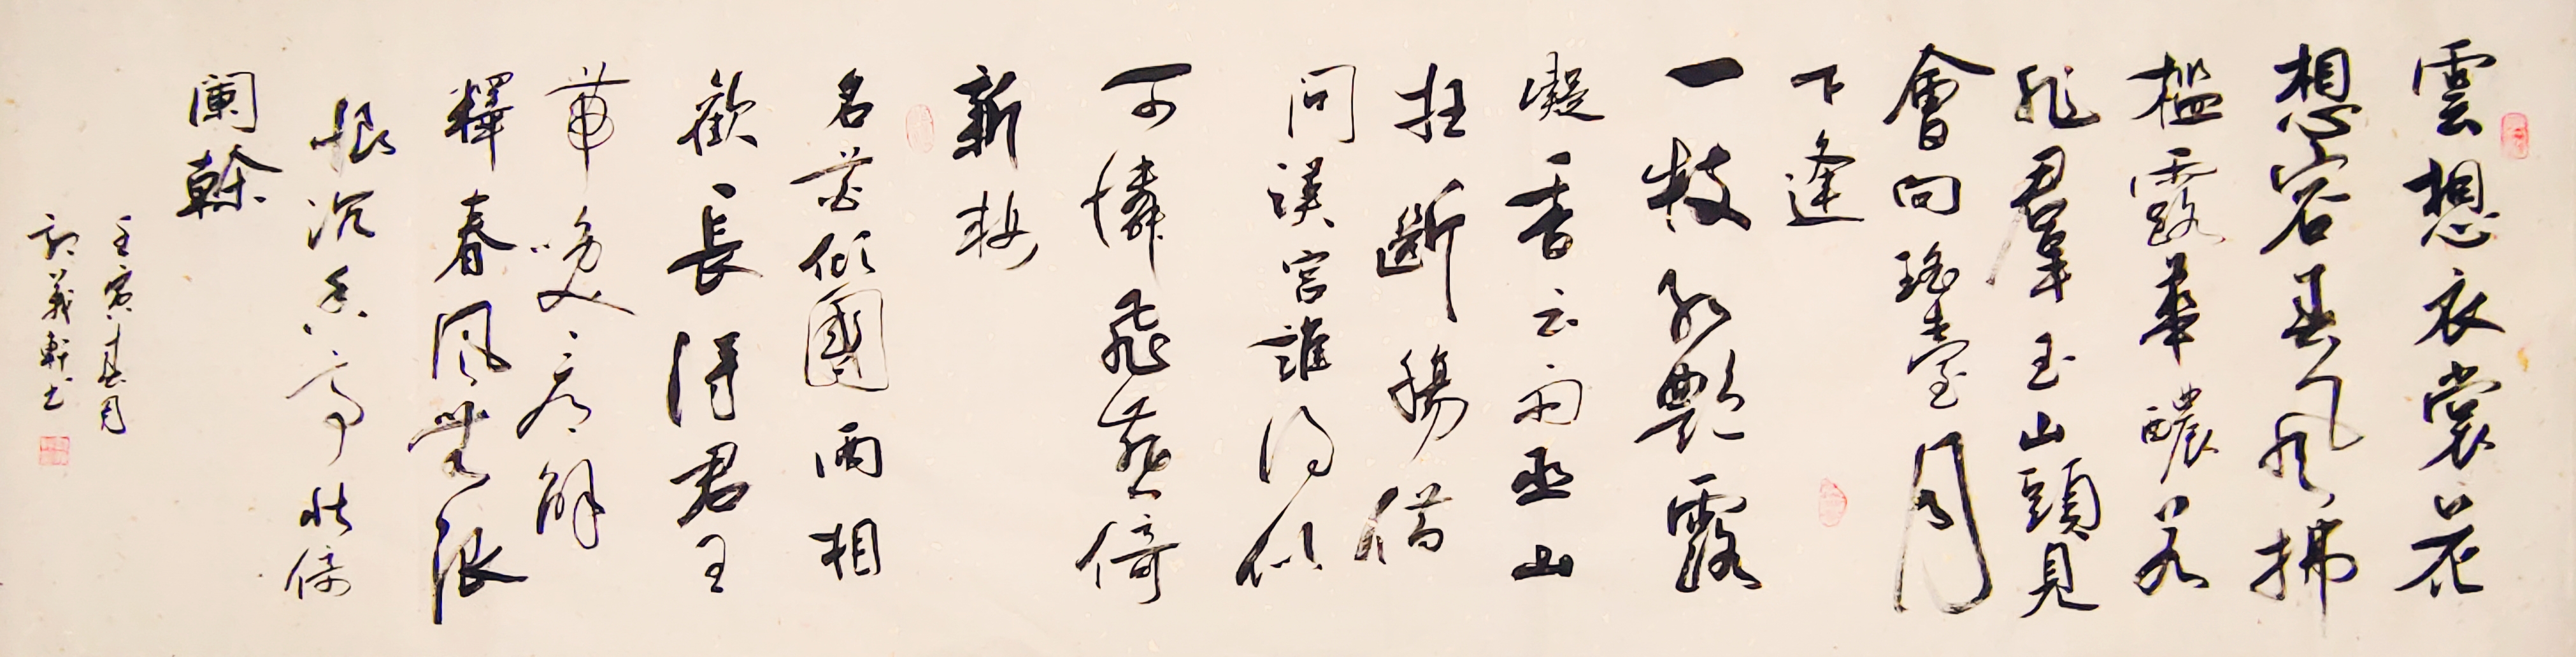 雲想衣裳花
想容春風拂
檻露華醲若
非羣玉山頭見
會向瑤臺月
下逢
一枝紅艷露
凝香雲雨巫山
枉斷腸借
問漢宮誰得似
可憐飛燕倚
新妝
名花傾國兩相
歡長得君王
帶笑看解
釋春風無限
恨沉香亭北倚
闌幹
壬寅春月
義軒書